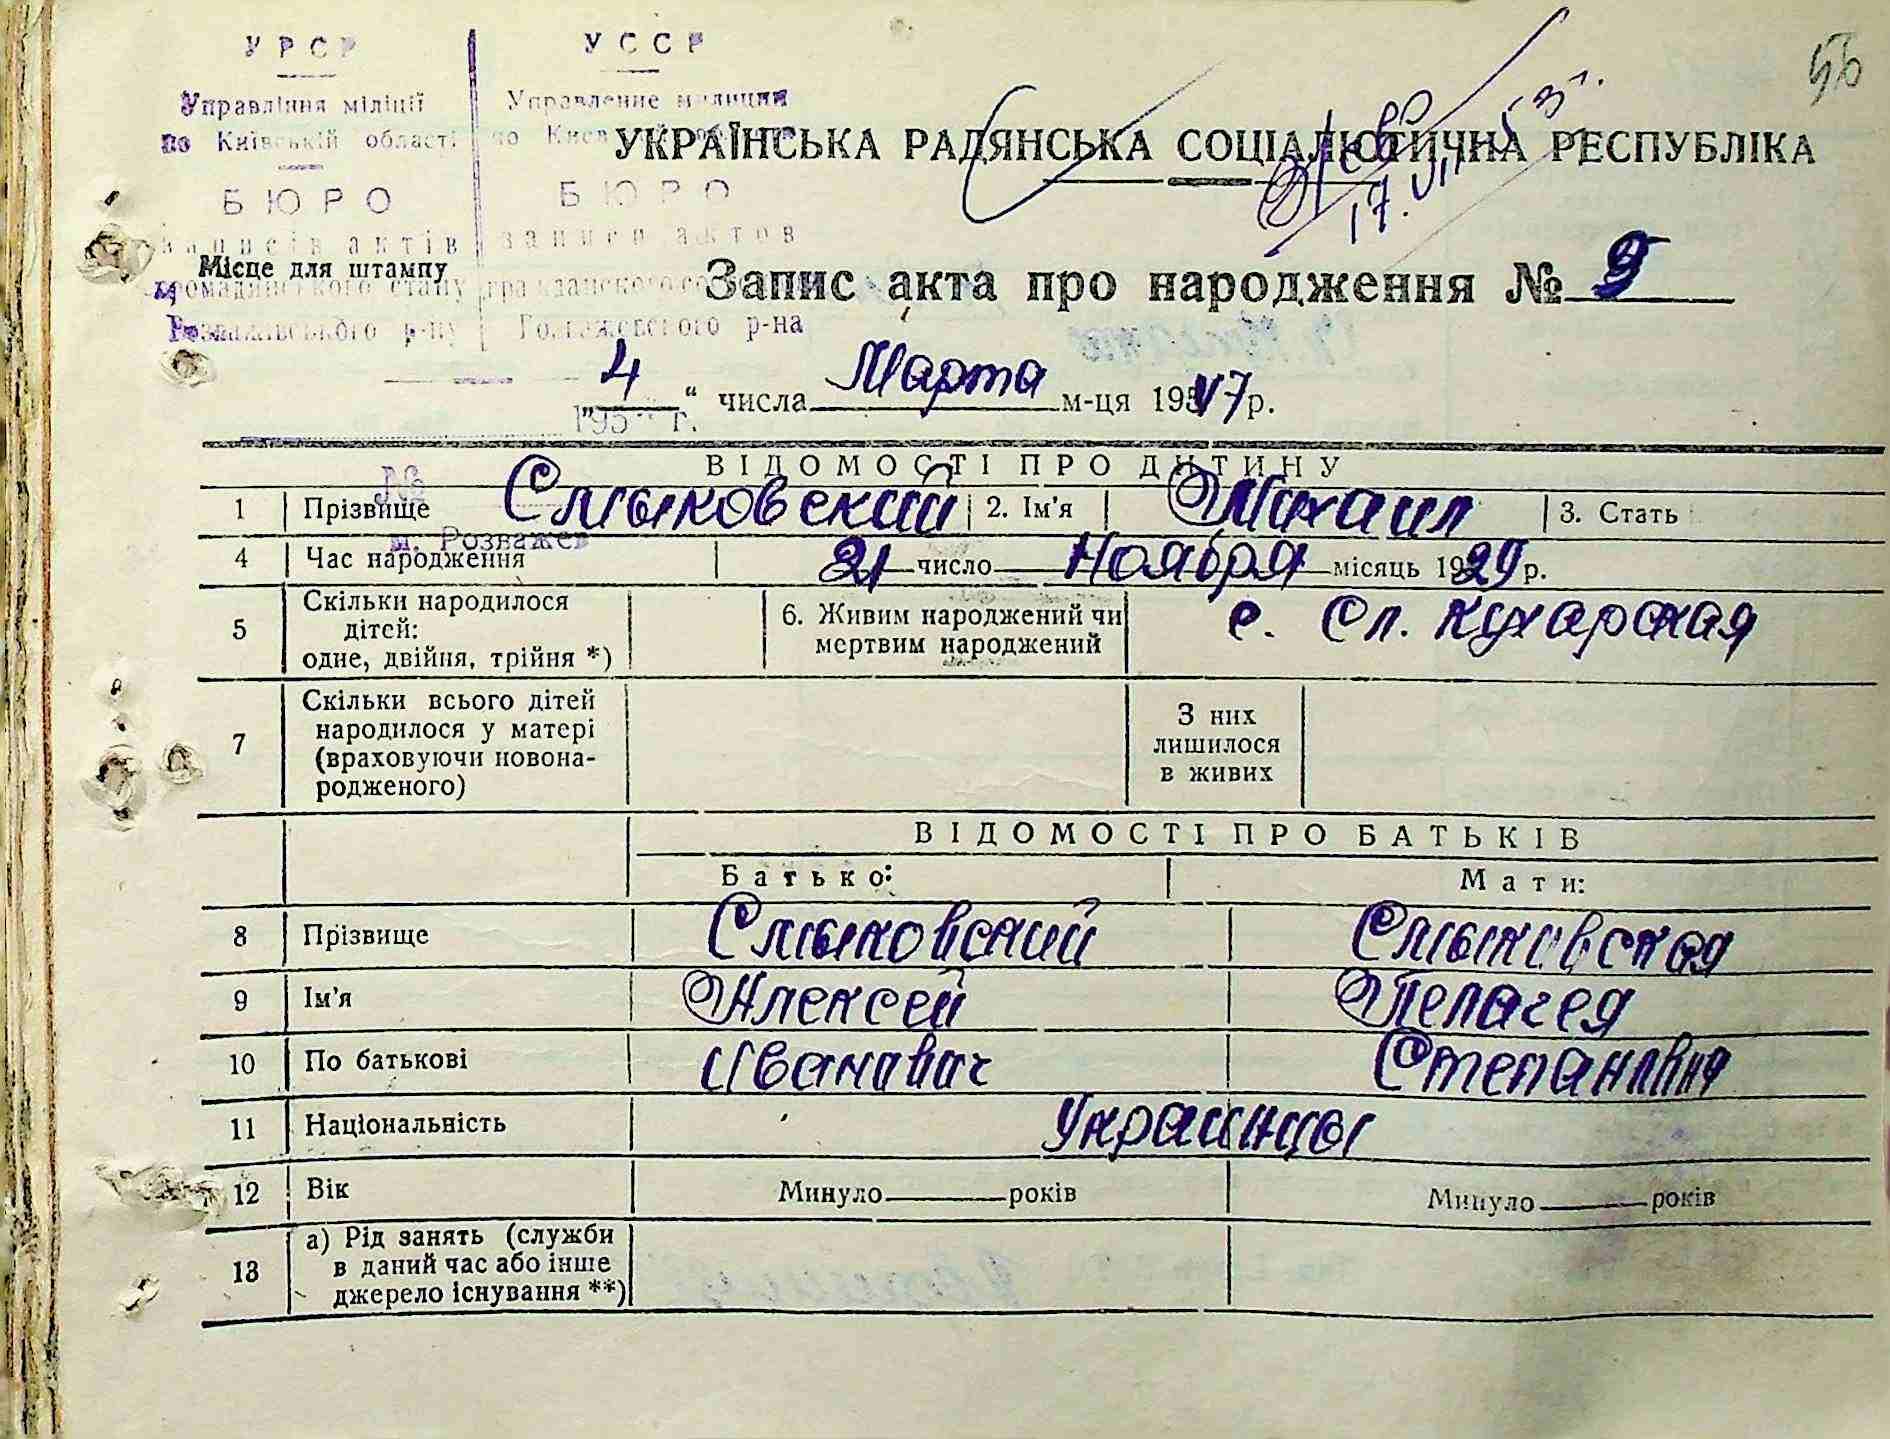 УРСР
УССР
56
Управління міліції
Управление милиции
по Київській області
17. VII 53 г.
УКРАЇНСЬКА РАДЯНСЬКА СОЦІАЛІСТИЧНА РЕСПУБЛІКА
БЮРО
БЮРО
записів актів
записи актов
Місце для штампу
громадянського стану
гражданского
Запис акта про народження № 9
Розважівського р-ну
Розважевского р-на
„4“ числа Марта м-ця 1947 р.
195 г.
ВІДОМОСТІ ПРО ДИТИНУ
№
1 Прізвище Смыковский 2. Ім'я Михаил 3. Стать
м. Розважев
4 Час народження 21 число Ноября місяць 1929 р.
5 Скільки народилося дітей: одне, двійня, трійня *)
6. Живим народжений чи мертвим народжений с. Сл. Кухарская
7 Скільки всього дітей народилося у матері (враховуючи новонародженого)
З них лишилося в живих
ВІДОМОСТІ ПРО БАТЬКІВ
Батько: Мати:
8 Прізвище Смыковский Смыковская
9 Ім'я Алексей Пелагея
10 По батькові Иванович Степановна
11 Національність Украинцы
12 Вік Минуло років Минуло років
13 а) Рід занять (служби в даний час або інше джерело існування **)